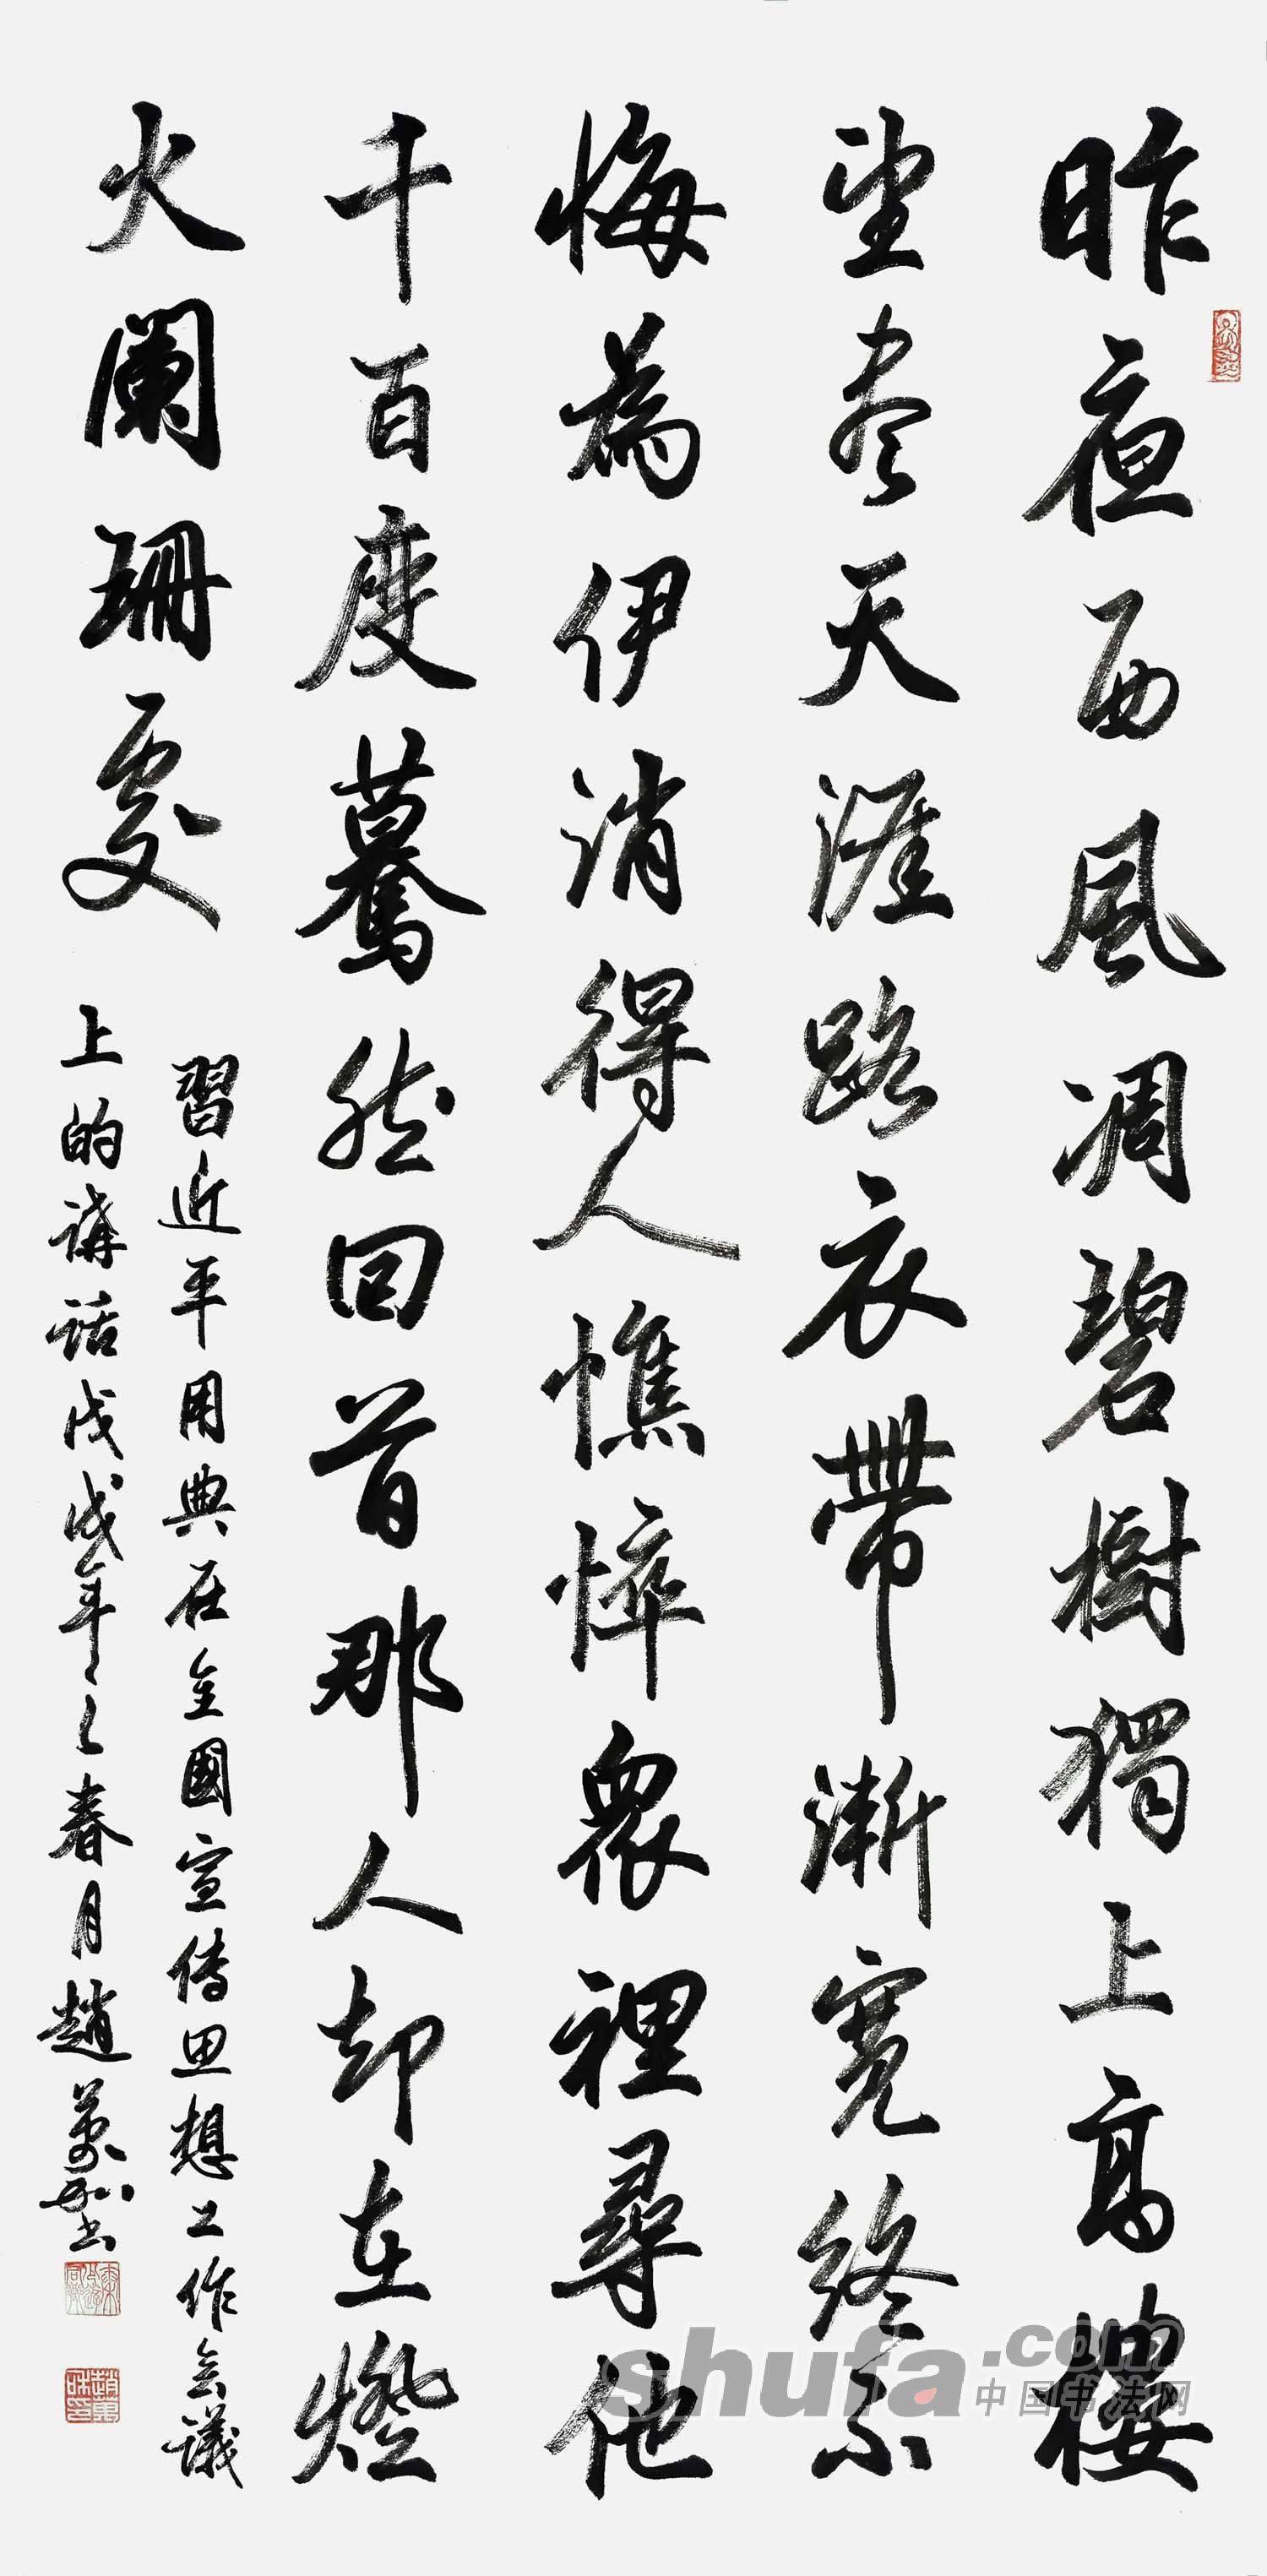 昨夜西風凋碧樹獨上高樓
望尽天涯路衣帶漸寬終不
悔為伊消得人憔悴眾裡尋他
千百度驀然回首那人却在燈
火阑珊處
習近平用典在全國宣传思想工作会議
上的講話戊戌年之春月趙萬和書
shufa.com
中国书法网